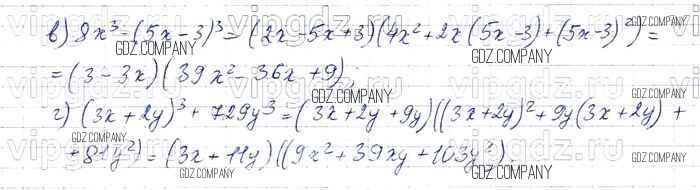 в) 8x³ - (5x - 3)³ = (2x - 5x + 3)(4x² + 2x(5x - 3) + (5x - 3)²) =
= (3 - 3x)(39x² - 36x + 9);
г) (3x + 2y)³ + 729y³ = (3x + 2y + 9y)((3x + 2y)² + 9y(3x + 2y) +
+ 81y²) = (3x + 11y)((9x² + 39xy + 103y²).
GDZ.COMPANY
GDZ.COMPANY
GDZ.COMPANY
GDZ.COMPANY
GDZ.COMPANY
GDZ.COMPANY
GDZ.COMPANY
GDZ.COMPANY